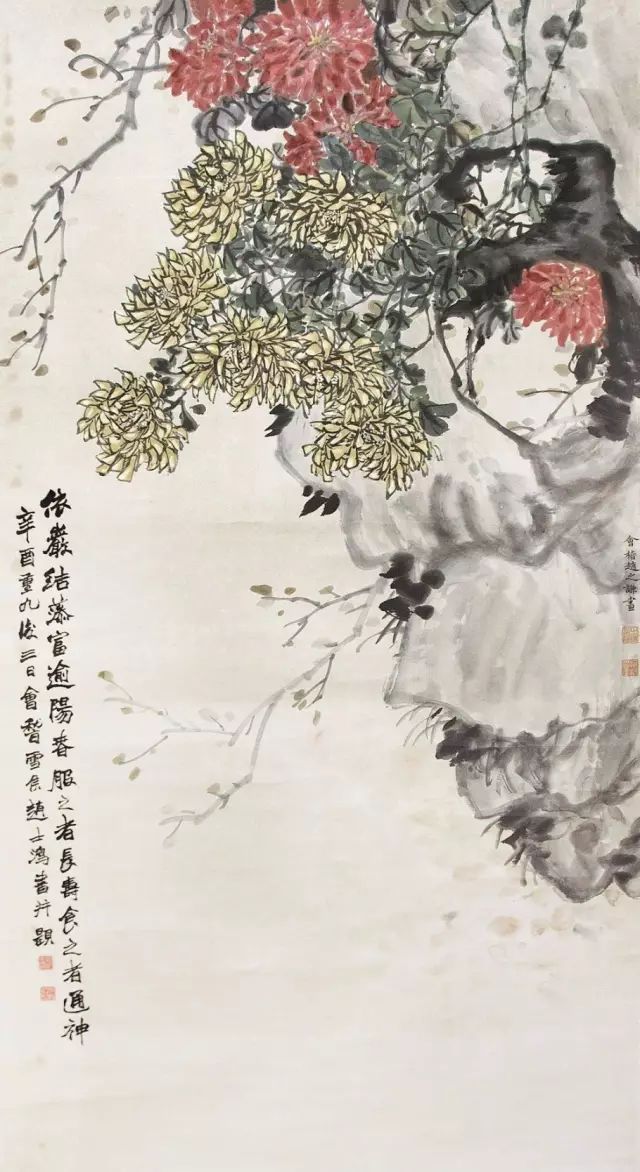 會稽趙之謙畫
依巖結富逾陽春服之者長壽食之者通神
辛酉重九後三日會稽雪趙士鴻并題